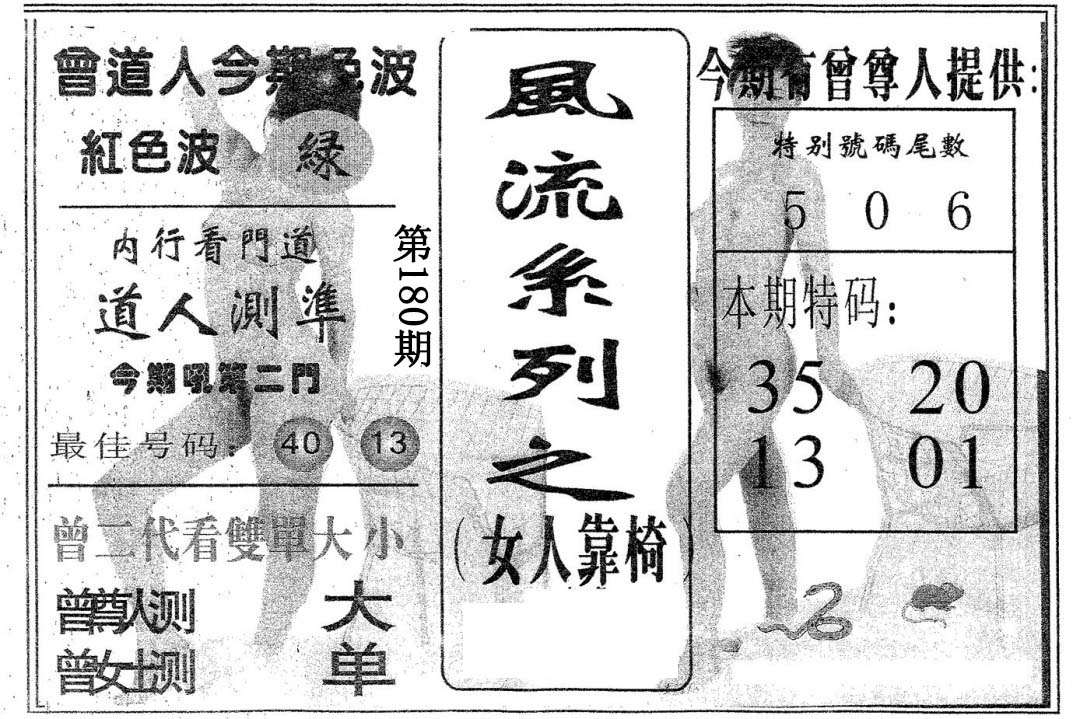 曾道人今期色波
紅色波 綠
內行看門道
道人測準
今期吼第二門
最佳号码: 40 13
曾二代看雙單大小
曾尊人测 大
曾女士测 单
第180期
風流系列之
(女人靠椅)
今期有曾尊人提供:
特别號碼尾數
5 0 6
本期特码:
35 20
13 01